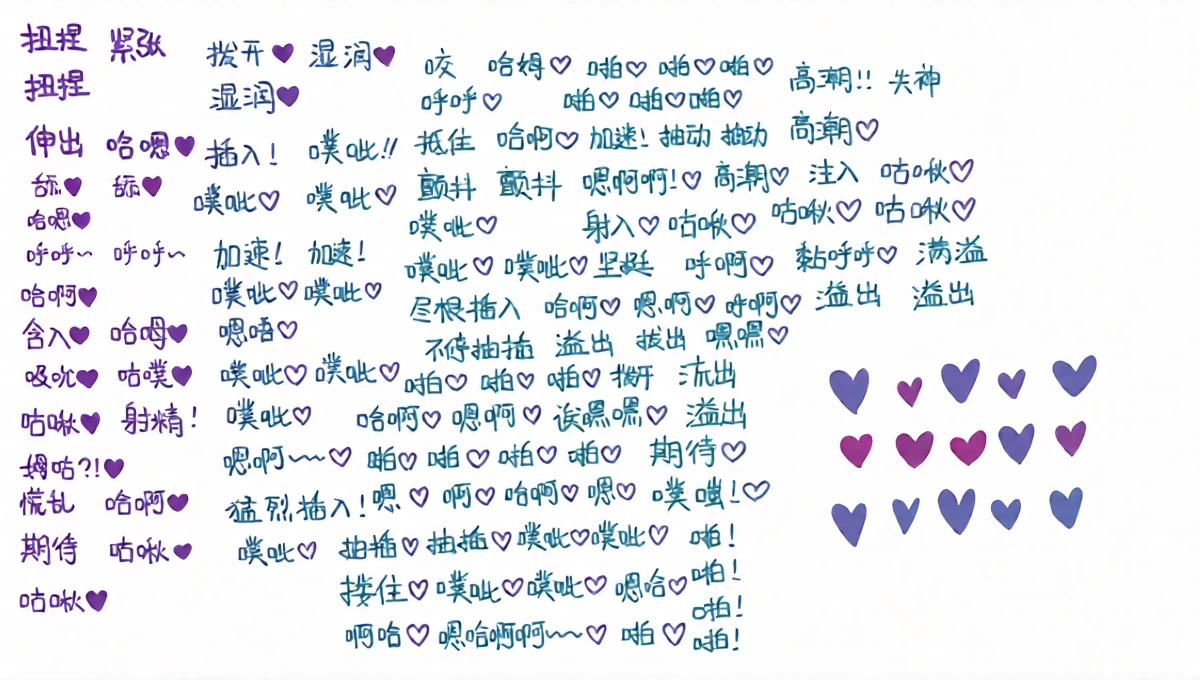 扭捏 紧张
扭捏
伸出 哈嗯♥
舔♥ 舔♥
哈嗯♥
呼呼~ 呼呼~
哈啊♥
含入♥ 哈姆♥
吸吮♥ 咕噗♥
咕啾♥ 射精！
姆咕?!♥
慌乱 哈啊♥
期待 咕啾♥
咕啾♥
拨开♥ 湿润♥
湿润♥
插入！ 噗呲!!
噗呲♡ 噗呲♡
加速！ 加速！
噗呲♡噗呲♡
嗯唔♡
噗呲♡噗呲♡
噗呲♡
嗯啊~~♡
猛烈插入！
噗呲♡
咬 哈姆♡ 啪♡ 啪♡啪♡
呼呼♡ 啪♡ 啪♡啪♡
抵住 哈啊♡ 加速！抽动 抽动
颤抖 颤抖 嗯啊啊!♡
噗呲♡ 射入♡ 咕啾♡
噗呲♡噗呲♡坚挺 呼啊♡
尽根插入 哈啊♡ 嗯啊♡ 呼啊♡
不停抽插 溢出 拔出 嘿嘿♡
啪♡ 啪♡ 啪♡ 掰开 流出
哈啊♡ 嗯啊♡ 诶嘿嘿♡ 溢出
啪♡ 啪♡ 啪♡ 啪♡ 期待♡
嗯♡ 啊♡ 哈啊♡ 嗯♡ 噗嗤!♡
抽插♡抽插♡噗呲♡噗呲♡ 啪！
搂住♡噗呲♡噗呲♡ 嗯哈♡啪！
啪！
啊哈♡ 嗯哈啊啊~~♡ 啪♡ 啪！
高潮!! 失神
高潮♡
高潮♡ 注入 咕啾♡
咕啾♡ 咕啾♡
黏呼呼♡ 满溢
溢出 溢出